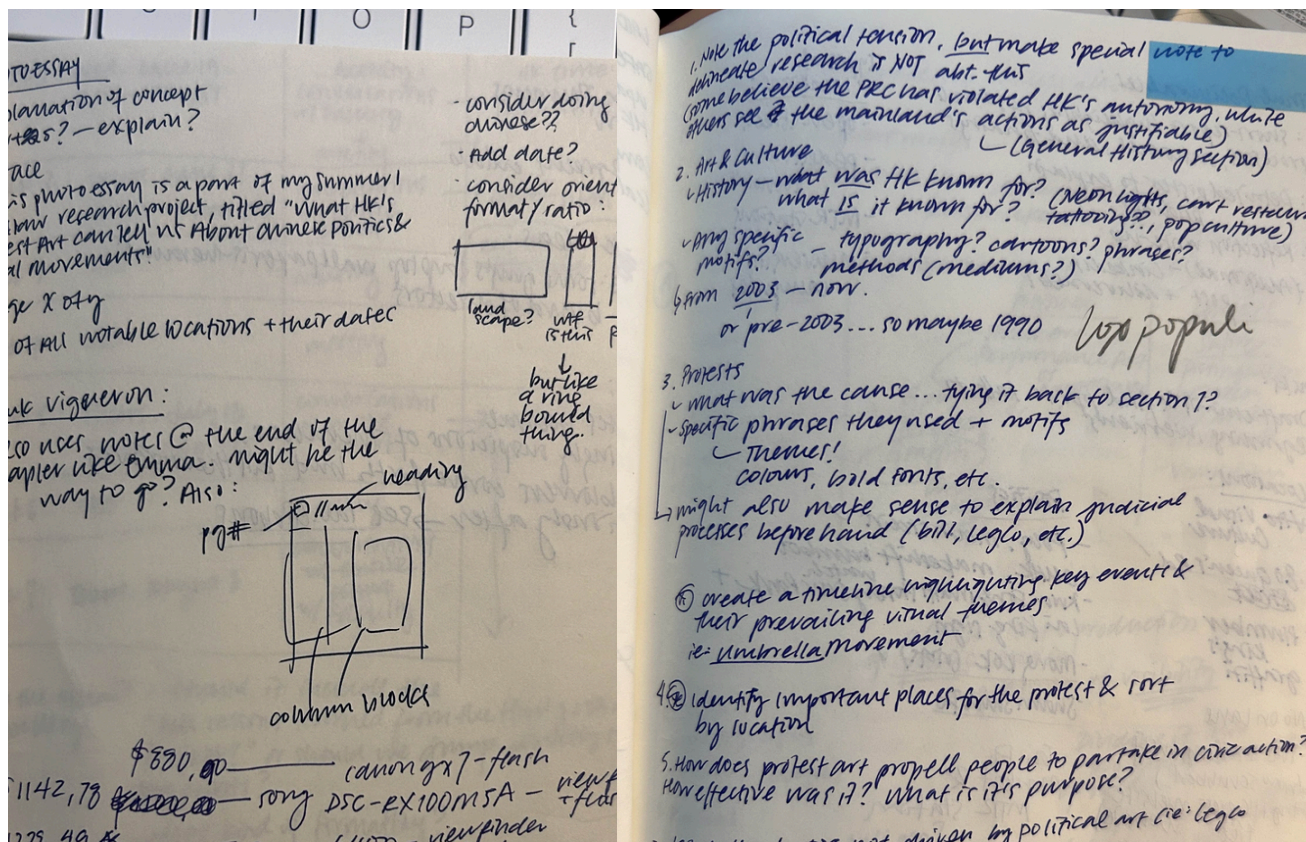 I O P {
[
OTOESSAY
planation of concept
? — explain?
ace
is photoessay is a part of my summer
research project, titled "What HK's
est Art can tell us About Chinese Politics &
al movements"
ge X of y
of All notable locations + their dates
- consider doing
chinese??
- Add date?
- consider orient
format / ratio:
land
scape?
wtf
is this
but like
a ring
bound
thing.
uk vigneron:
so uses notes @ the end of the
apter like Emma. might be the
way to go? Also:
heading
pg#
column blocks
$880,90 — canon gx7 - flash
1142,78 — sony DSC-RX100M5A — viewf
+ flas
viewfinder
1. Note the political tension, but make special note to
delineate research is NOT abt. this
(some believe the PRC has violated HK's autonomy, while
others see the mainland's actions as justifiable)
(General History section)
2. Art & Culture
History — what was HK known for? (Neon lights, cant restau
what is it known for? tattooing??, pop culture)
Any specific motifs? — typography? cartoons? phrases?
methods (mediums?)
from 2003 — now.
or pre-2003... so maybe 1990
vox populi
3. Protests
- what was the cause... tying it back to section 1?
- specific phrases they used + motifs
Themes!
colours, bold fonts, etc.
might also make sense to explain judicial
processes beforehand (bill, LegCo, etc.)
create a timeline highlighting key events &
their prevailing visual themes
ie: umbrella movement
4. identify important places for the protest & sort
by location
5. How does protest art propell people to partake in civic action?
How effective was it? What is it's purpose?
not driven by political art (ie: Legco